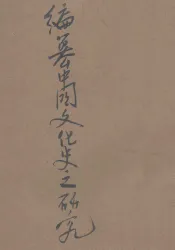 編纂中国文化史之研究